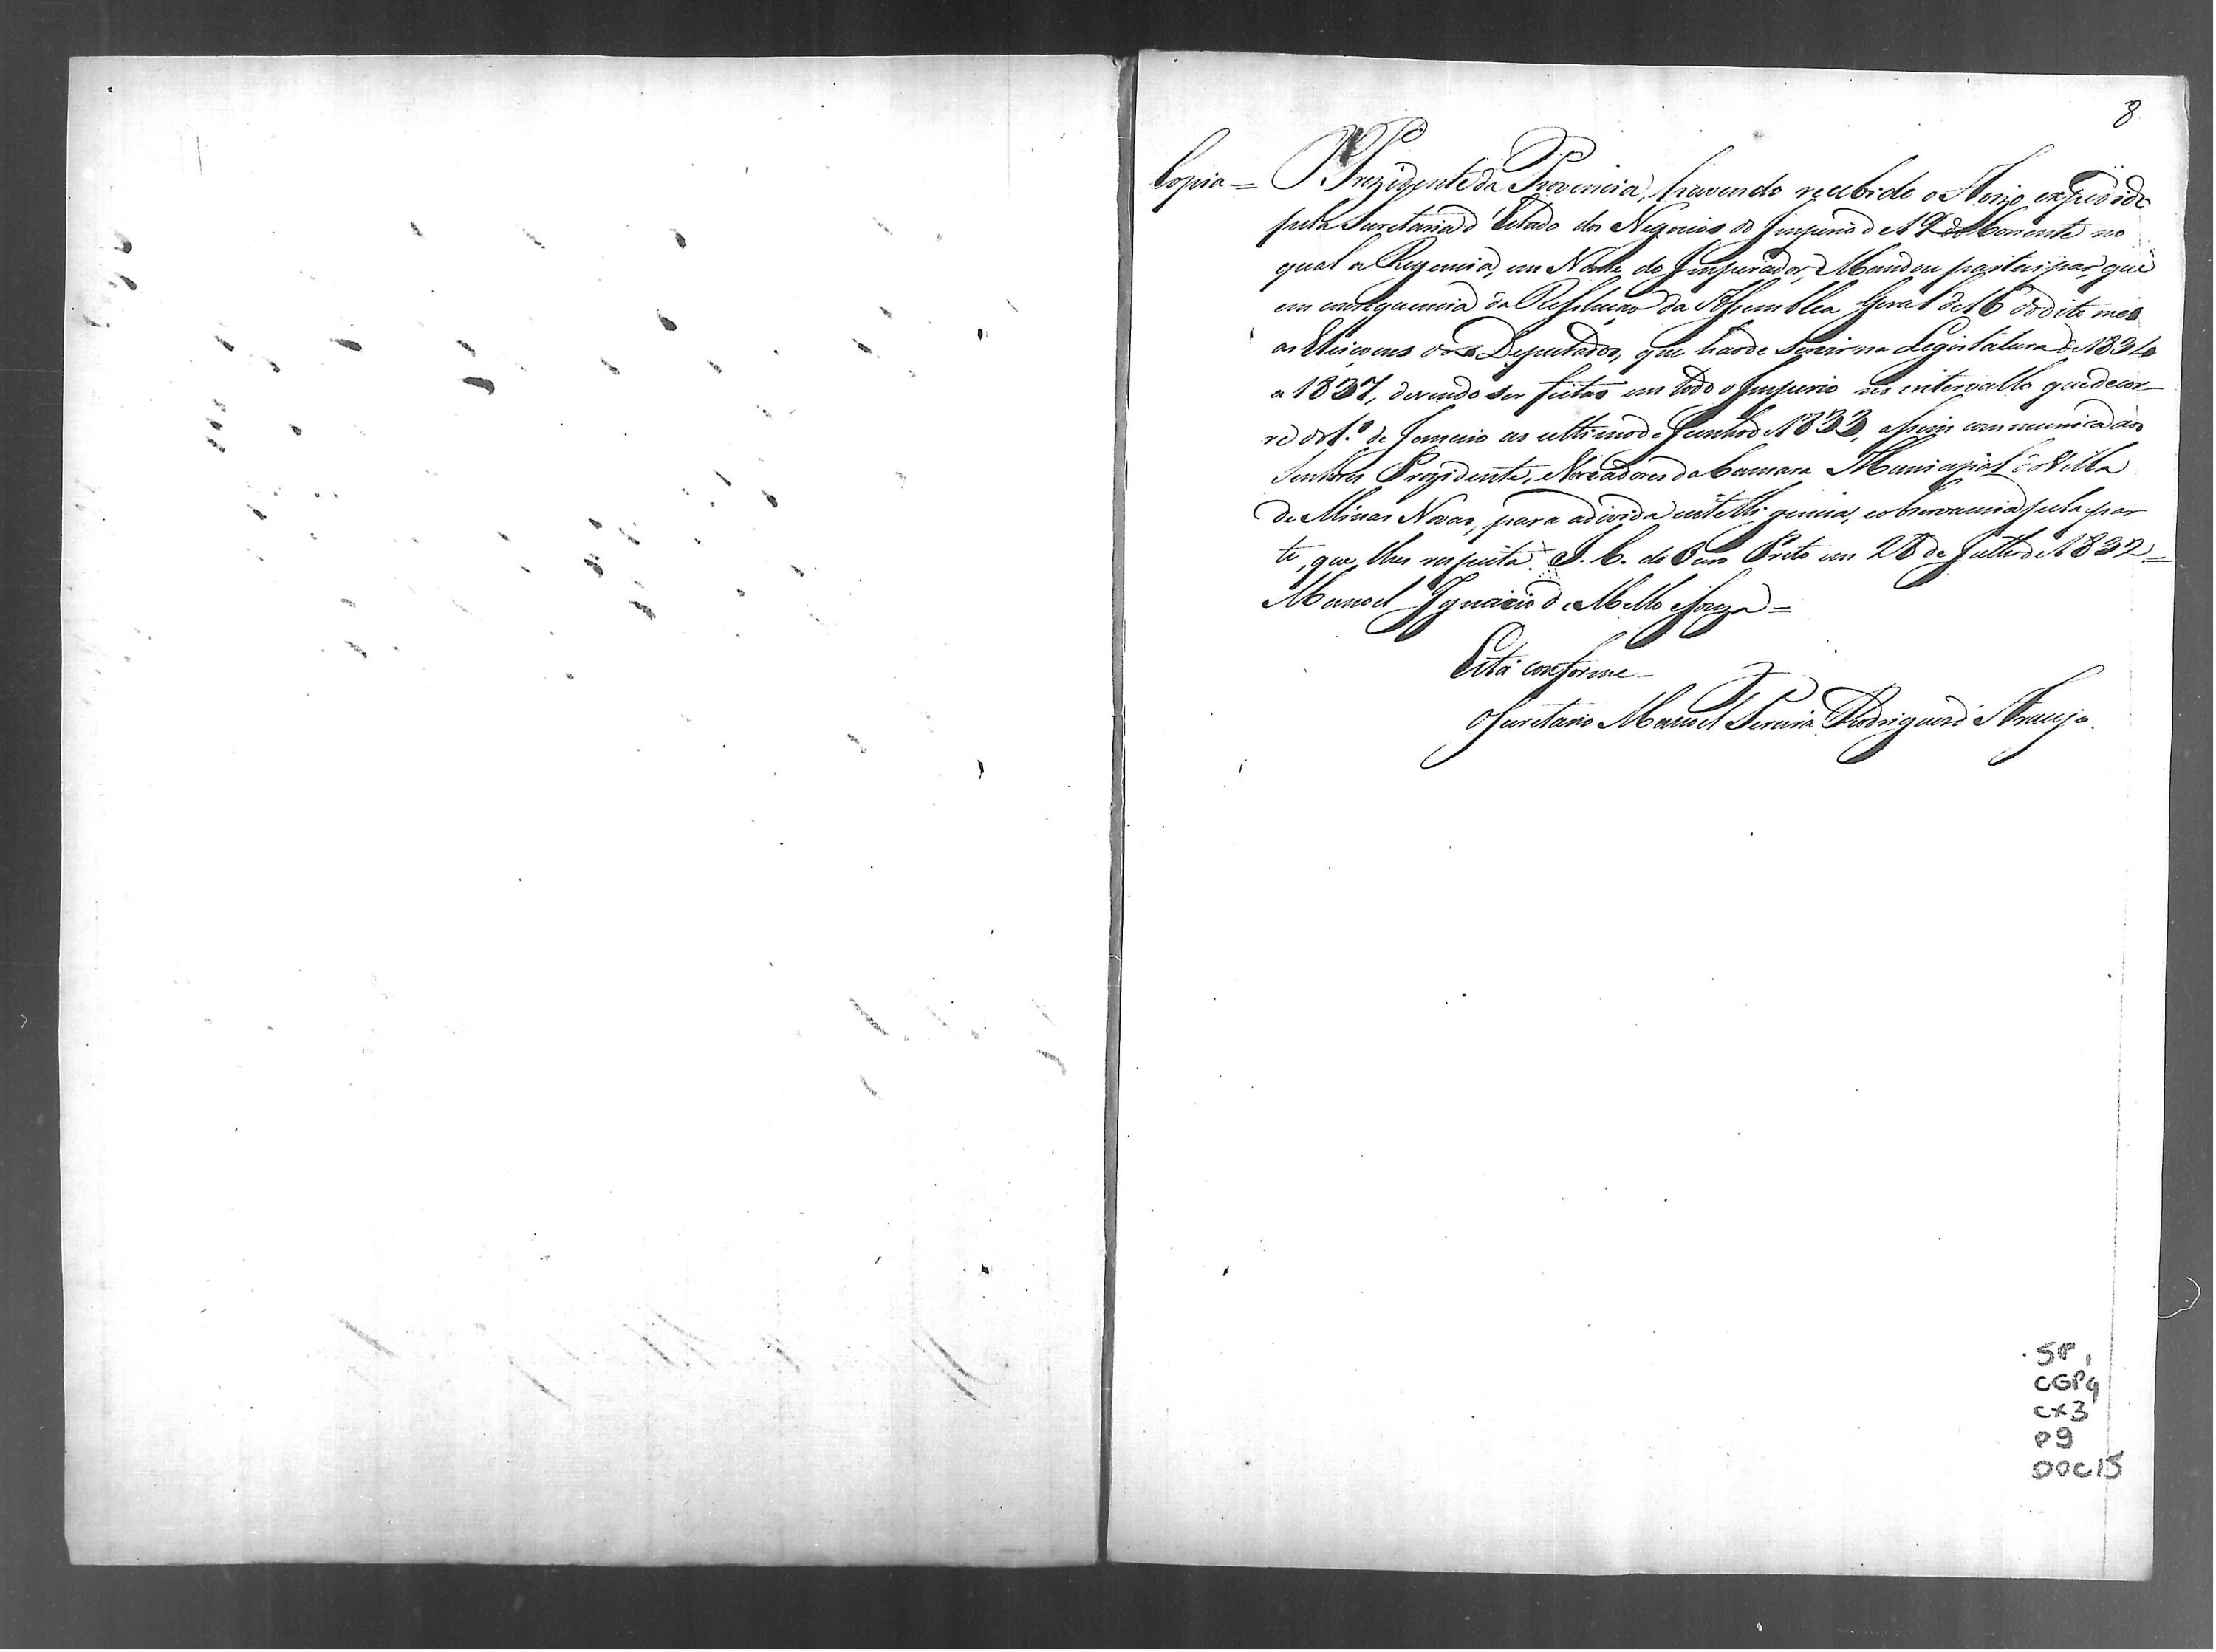 8
Copia = O Prezidente da Provincia, havendo recebido o Avizo expedido
pela Secretaria d'Estado dos Negocios do Imperio de 19 do Corrente no
qual a Regencia, em Nome do Imperador, Mandou participar, que
em consequencia da Resolucao da Assemblea Geral de 16 do dito mes
as Eleicoens dos Deputados, que hao de servir na Legislatura de 1834
a 1837, devendo ser feitas em todo o Imperio no intervallo que decor-
re do 1.º de Janeiro ao ultimo de Junho de 1833, assim communica aos
Senhores Prezidente, e Vereadores da Camara Municipal da Villa
de Minas Novas, para a divida intelligencia, e observancia pela par
te, que lhes respeita. I. C. do Ouro Preto em 28 de Julho de 1832 =
Manoel Ignacio de Mello e Souza =
Está conforme
O Secretario Manoel Pereira Rodrigues d'Araujo.
SP 1
CGP 9
CX3
P9
DOC15